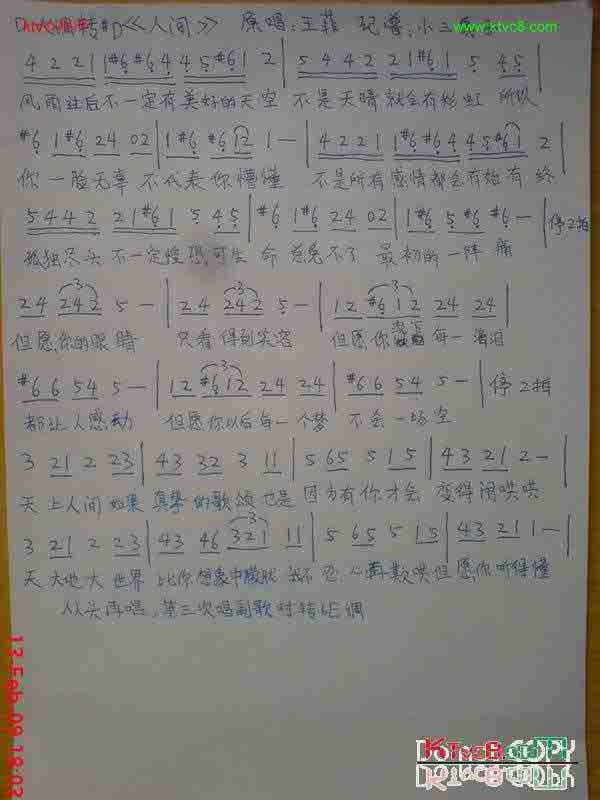 D 转#D《人间》 原唱:王菲 记谱:小三 www.ktvc8.com
4 2 2 1 1 #6 #6 4 4 5 #6 1 2 | 5 4 4 2 2 1 #6 1 5 4 5 |
风雨过后不一定有美好的天空 不是天晴就会有彩虹 所以
#6 1 #6 2 4 0 2 | 1 #6 #6 1 2 1 — | 4 2 2 1 1 #6 #6 4 4 5 #6 1 2 |
你一脸无辜 不代表你懵懂 不是所有感情都会有始有终
5 4 4 2 2 1 #6 1 5 4 5 | #6 1 #6 2 4 0 2 | 1 #6 5 #6 #6 — | 停2拍
孤独尽头不一定惶恐 可生命总免不了 最初的一阵痛
2 4 2 4 2 5 — | 2 4 2 4 2 5 — | 1 2 #6 1 2 2 4 2 4 |
但愿你的眼睛 只看得到笑容 但愿你流下每一滴泪
#6 6 5 4 5 — | 1 2 #6 1 2 2 4 2 4 | #6 6 5 4 5 — | 停2拍
都让人感动 但愿你以后每一个梦 不会一场空
3 2 1 2 2 3 | 4 3 3 2 3 1 1 | 5 6 5 5 1 5 | 4 3 2 1 2 — |
天上人间如果真挚的歌颂也是因为有你才会变得闹哄哄
3 2 1 2 2 3 | 4 3 4 6 3 2 1 1 1 | 5 6 5 5 1 5 | 4 3 2 1 1 — |
天大地大世界比你想象中朦胧我不忍心再欺哄但愿你听得懂
从头再唱,第三次唱副歌时转bE调
13 Feb 09 18:02
KTvc8.COPY